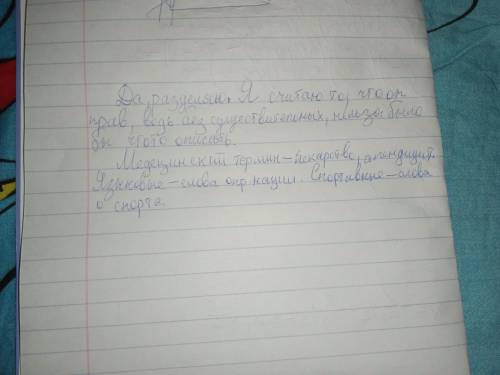 Да, разделяю. Я считаю то, что он
прав, ведь без существительных, нельзя было
бы что то описать.
Медецинский термин - лекарство, апендицит.
Языковые - слова опр. нации. Спортивные - слова
о спорте.